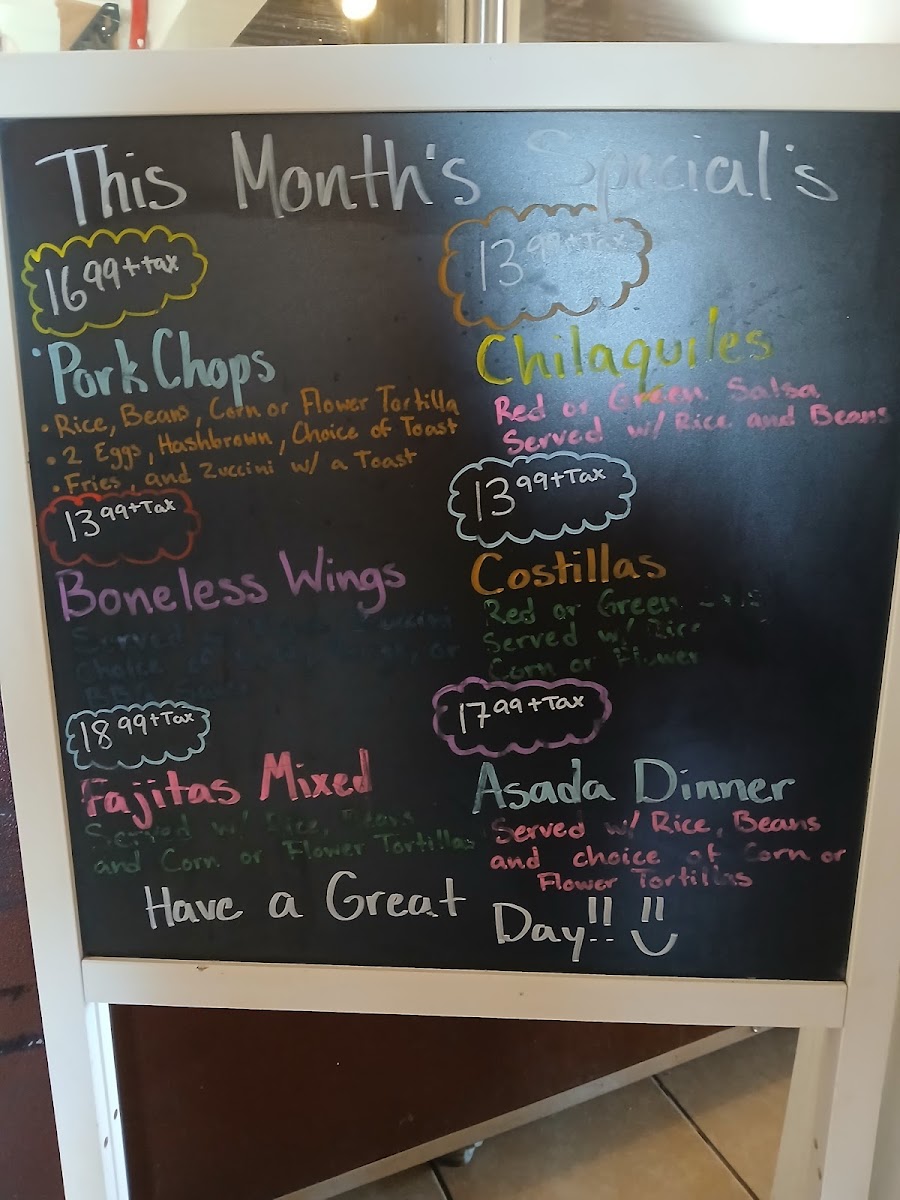 This Month's Special's
16 99+tax
Pork Chops
• Rice, Beans, Corn or Flower Tortilla
• 2 Eggs, Hashbrown, Choice of Toast
• Fries, and Zuccini w/ a Toast
13 99+Tax
Boneless Wings
Served Zuccini
Choice of or
18 99+Tax
Fajitas Mixed
Served w/ Rice, Beans
and Corn or Flower Tortillas
13 99+Tax
Chilaquiles
Red or Green Salsa
Served w/ Rice and Beans
13 99+Tax
Costillas
Red or Green
Served w/ Rice
Corn or Flower
17 99+Tax
Asada Dinner
Served w/ Rice, Beans
and choice of Corn or
Flower Tortillas
Have a Great Day!!